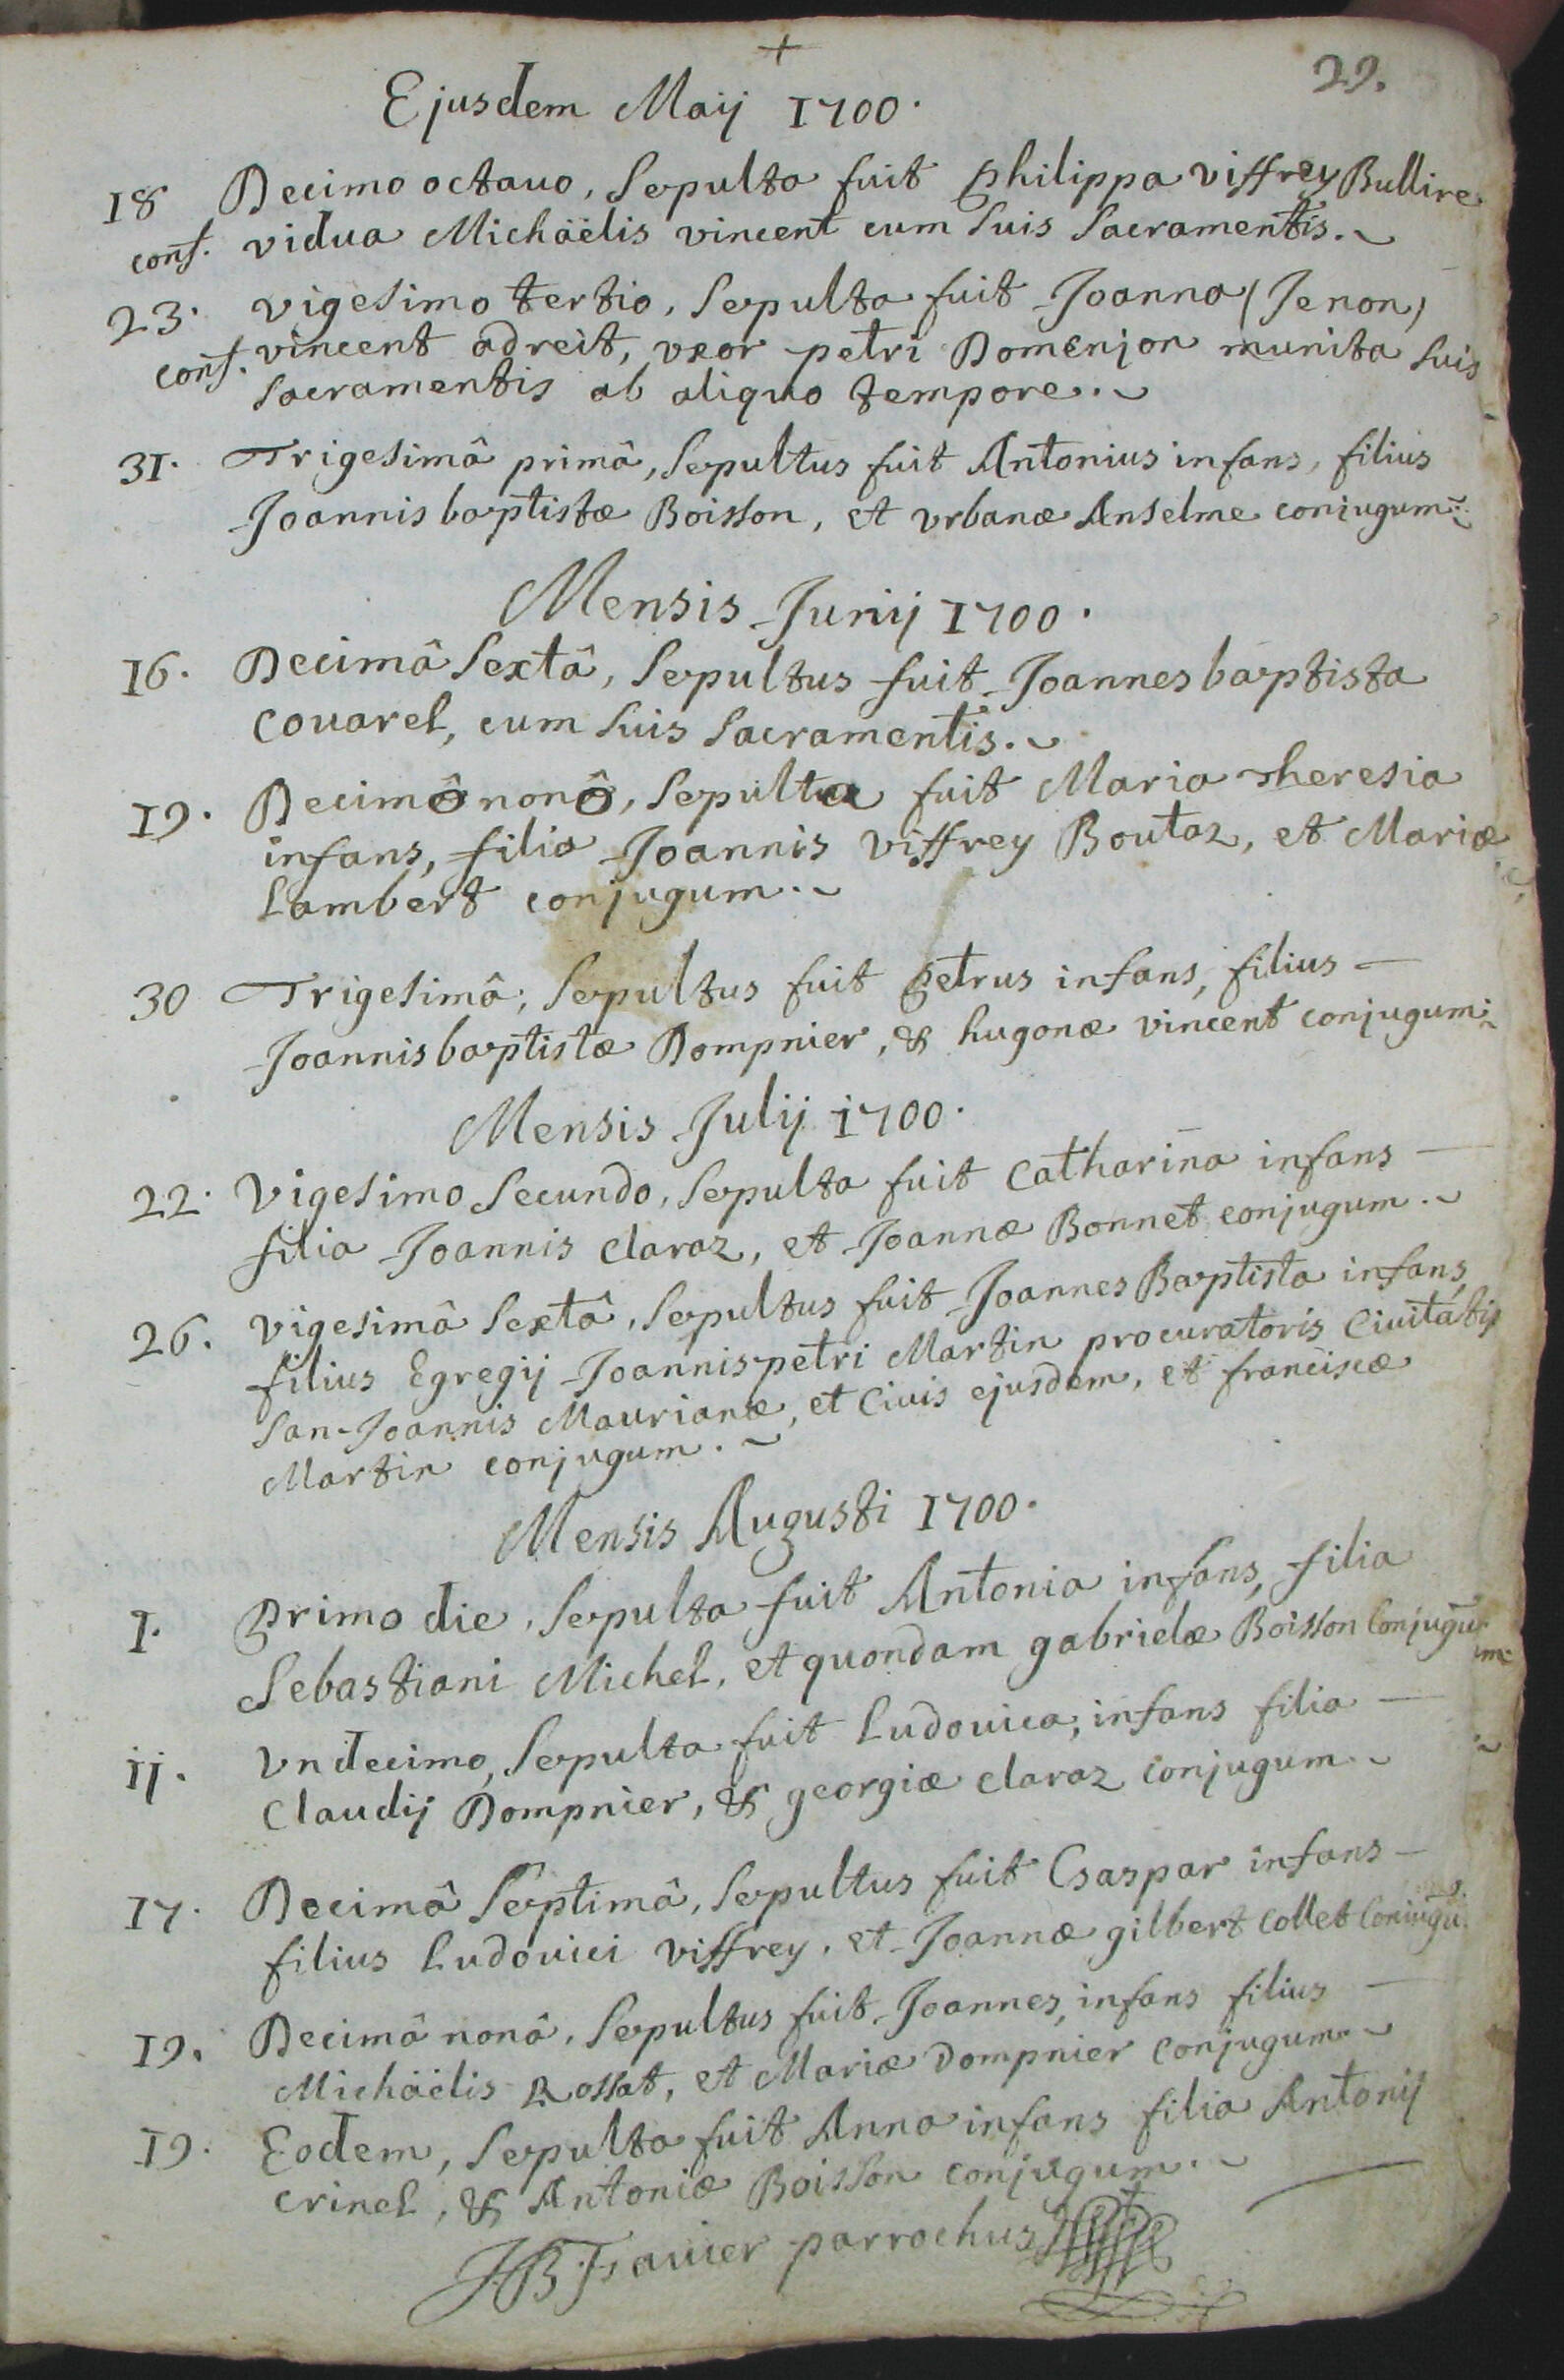 +
29.
Ejusdem Maij 1700.
18 Decimo octauo, Sepulta fuit philippa viffrey Bullire
conf. vidua Michäelis vincent cum suis Sacramentis.
23. vigesimo tertio, Sepulta fuit Joanna (Jenon)
conf. vincent adreit, vxor petri Domenjon munita suis
Sacramentis ab aliquo tempore.
31. Trigesimâ primâ, Sepultus fuit Antonius infans, filius
Joannisbaptistæ Boisson, et vrbanæ Anselme conjugum.
Mensis Junij 1700.
16. Decimâ Sextâ, Sepultus fuit Joannesbaptista
Couarel, cum suis Sacramentis.
19. Decimô nonô, Sepulta fuit Maria Theresia
infans, filia Joannis viffrey Boutaz, et Mariæ
Lambert conjugum.
30 Trigesimâ, Sepultus fuit petrus infans, filius
Joannisbaptistæ Dompnier, & hugonæ vincent conjugum.
Mensis Julij 1700.
22. Vigesimo Secundo, Sepulta fuit Catharina infans
filia Joannis Claraz, et Joannæ Bonnet conjugum.
26. vigesimâ Sextâ, Sepultus fuit Joannes Baptista infans,
filius Egregij Joannispetri Martin procuratoris Ciuitatis
San-Joannis Maurianæ, et Ciuis ejusdem, et franciscæ
Martin conjugum.
Mensis Augusti 1700.
1. Primo die, Sepulta fuit Antonia infans, filia
Sebastiani Michel, et quondam gabrielæ Boisson Conjugum
11. Vndecimo, Sepulta fuit Ludouica, infans filia
Claudij Dompnier, & georgiæ Claraz Conjugum.
17. Decimâ Septimâ, Sepultus fuit Gaspar infans
filius Ludouici viffrey, et Joannæ gilbert Collet Coniugū.
19. Decimâ nonâ, Sepultus fuit Joannes, infans filius
Michäelis Rossat, et Mariæ Dompnier Conjugum.
19. Eodem, Sepulta fuit Anna infans filia Antonij
Crinel, & Antoniæ Boisson conjugum.
JB Fauier parrochus